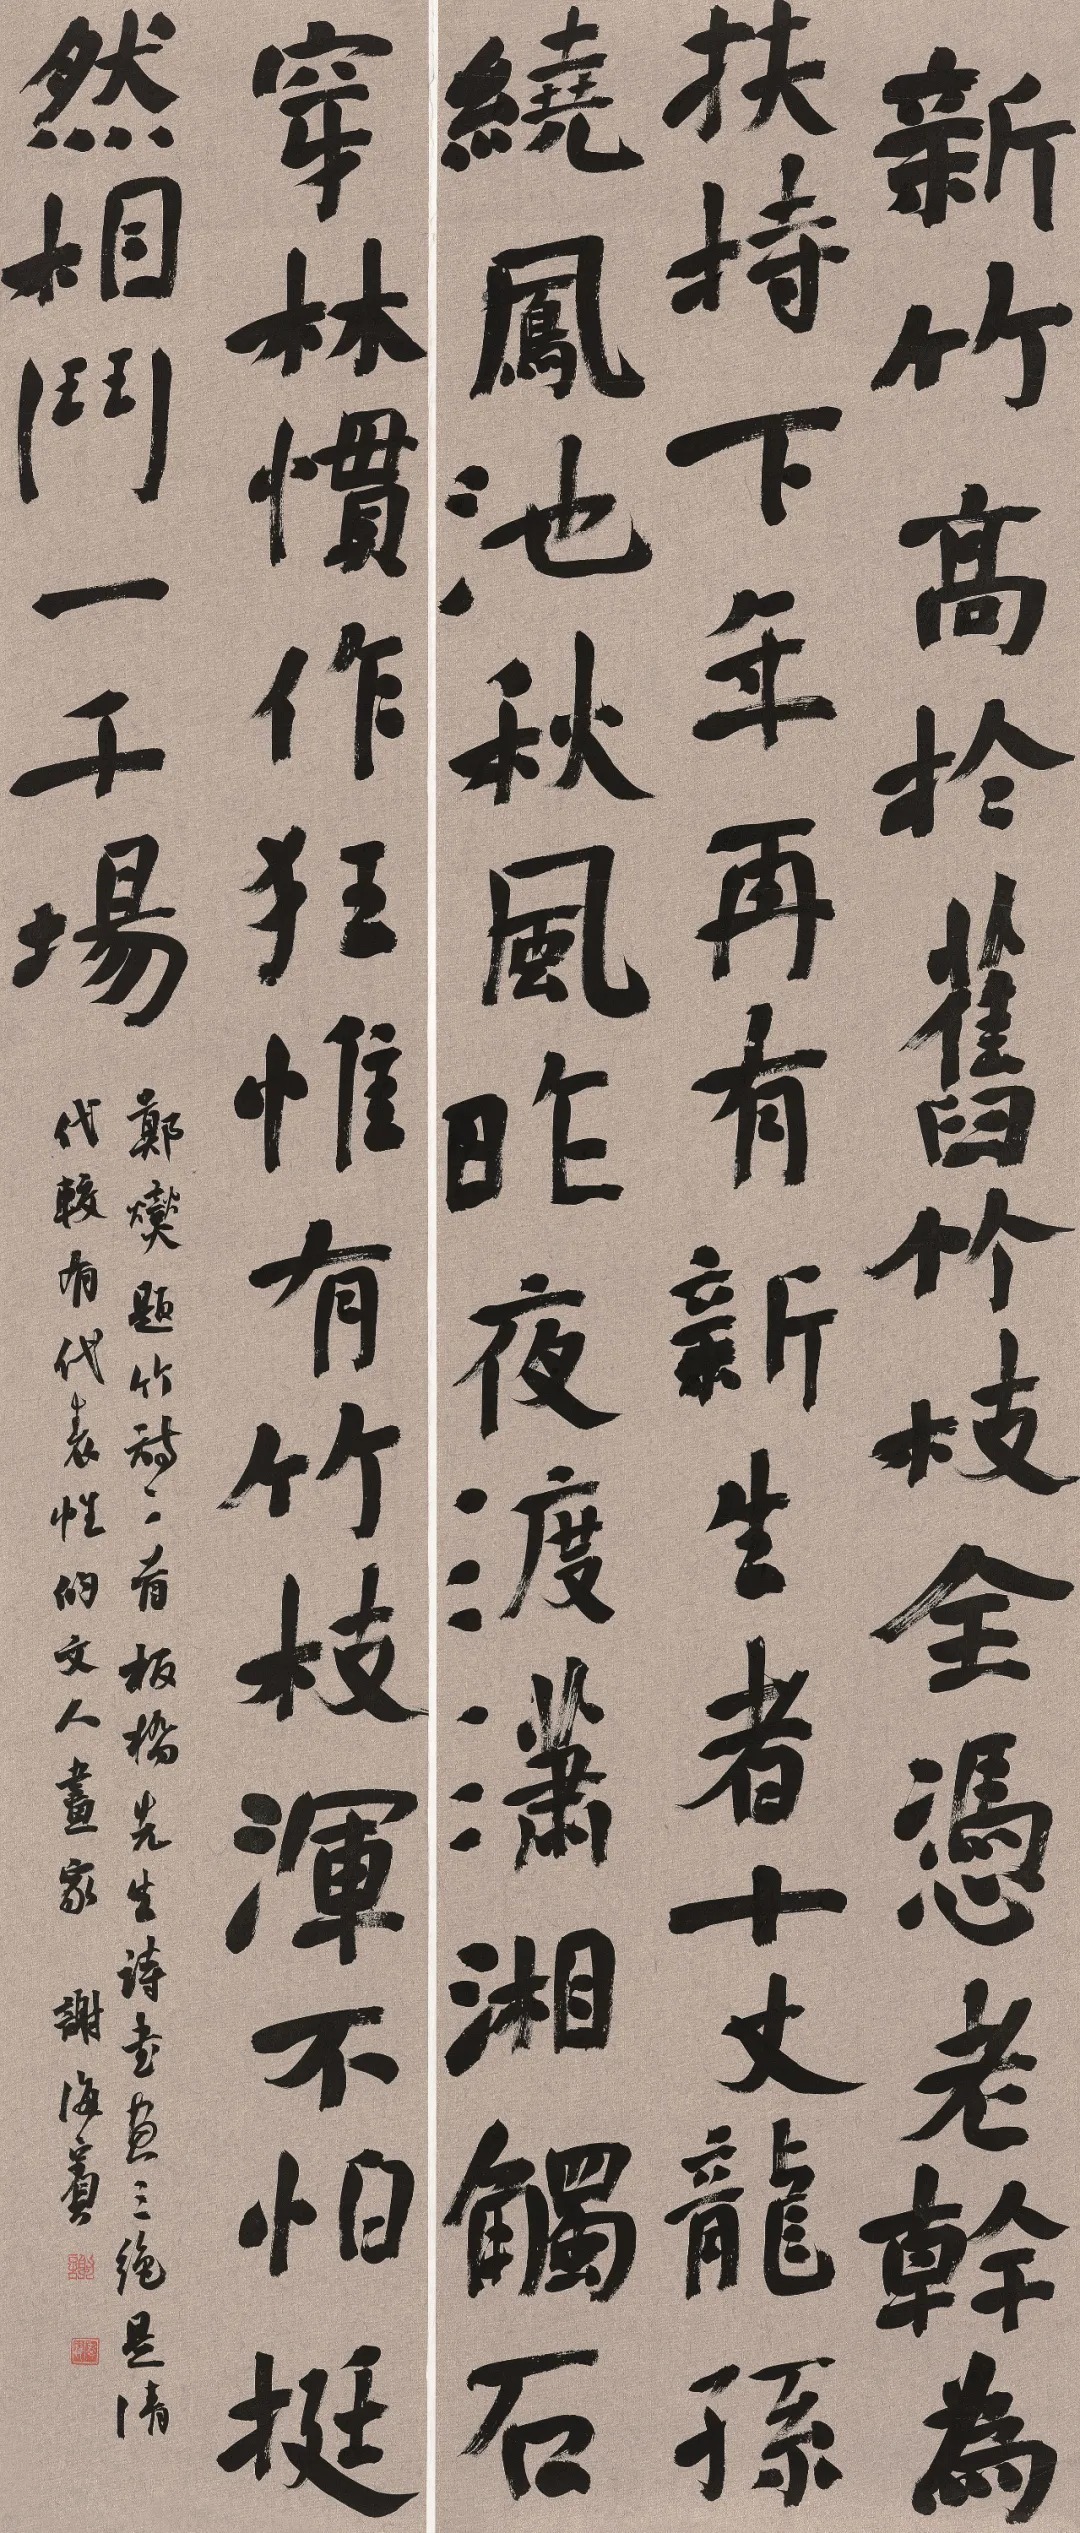 新竹高於舊竹枝全憑老幹為
扶持下年再有新生者十丈龍孫
繞鳳池秋風昨夜渡瀟湘觸石
穿林慣作狂惟有竹枝渾不怕挺
然相鬥一千場
鄭燮題竹詩二首板橋先生詩書畫三絕是清
代較有代表性的文人畫家 謝海賓